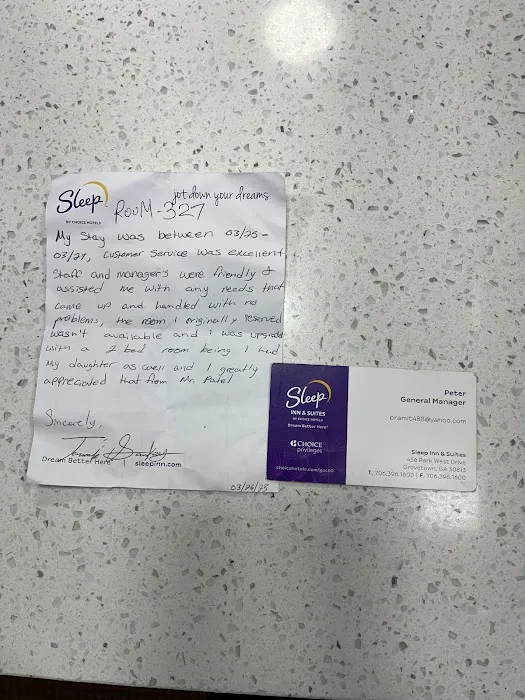 Sleep
BY CHOICE HOTELS
jot down your dreams
ROOM-327
My Stay was between 03/25-
03/27, customer service was excellent
Staff and manager's were friendly &
assisted me with any needs that
came up and handled with no
problems, the room I originally reserved
wasn't available and I was upgraded
with a 2 bed room being I had
My daughter as well and I greatly
appreciated that from Mr. Patel
Sincerely,
Dream Better Here
sleepinn.com
Sleep
INN & SUITES
BY CHOICE HOTELS
Dream Better Here
CHOICE
privileges
Peter
General Manager
pramit488@yahoo.com
Sleep Inn & Suites
456 Park West Drive
Grovetown, GA 30813
T. 706.396.1600 | F. 706.396.1600